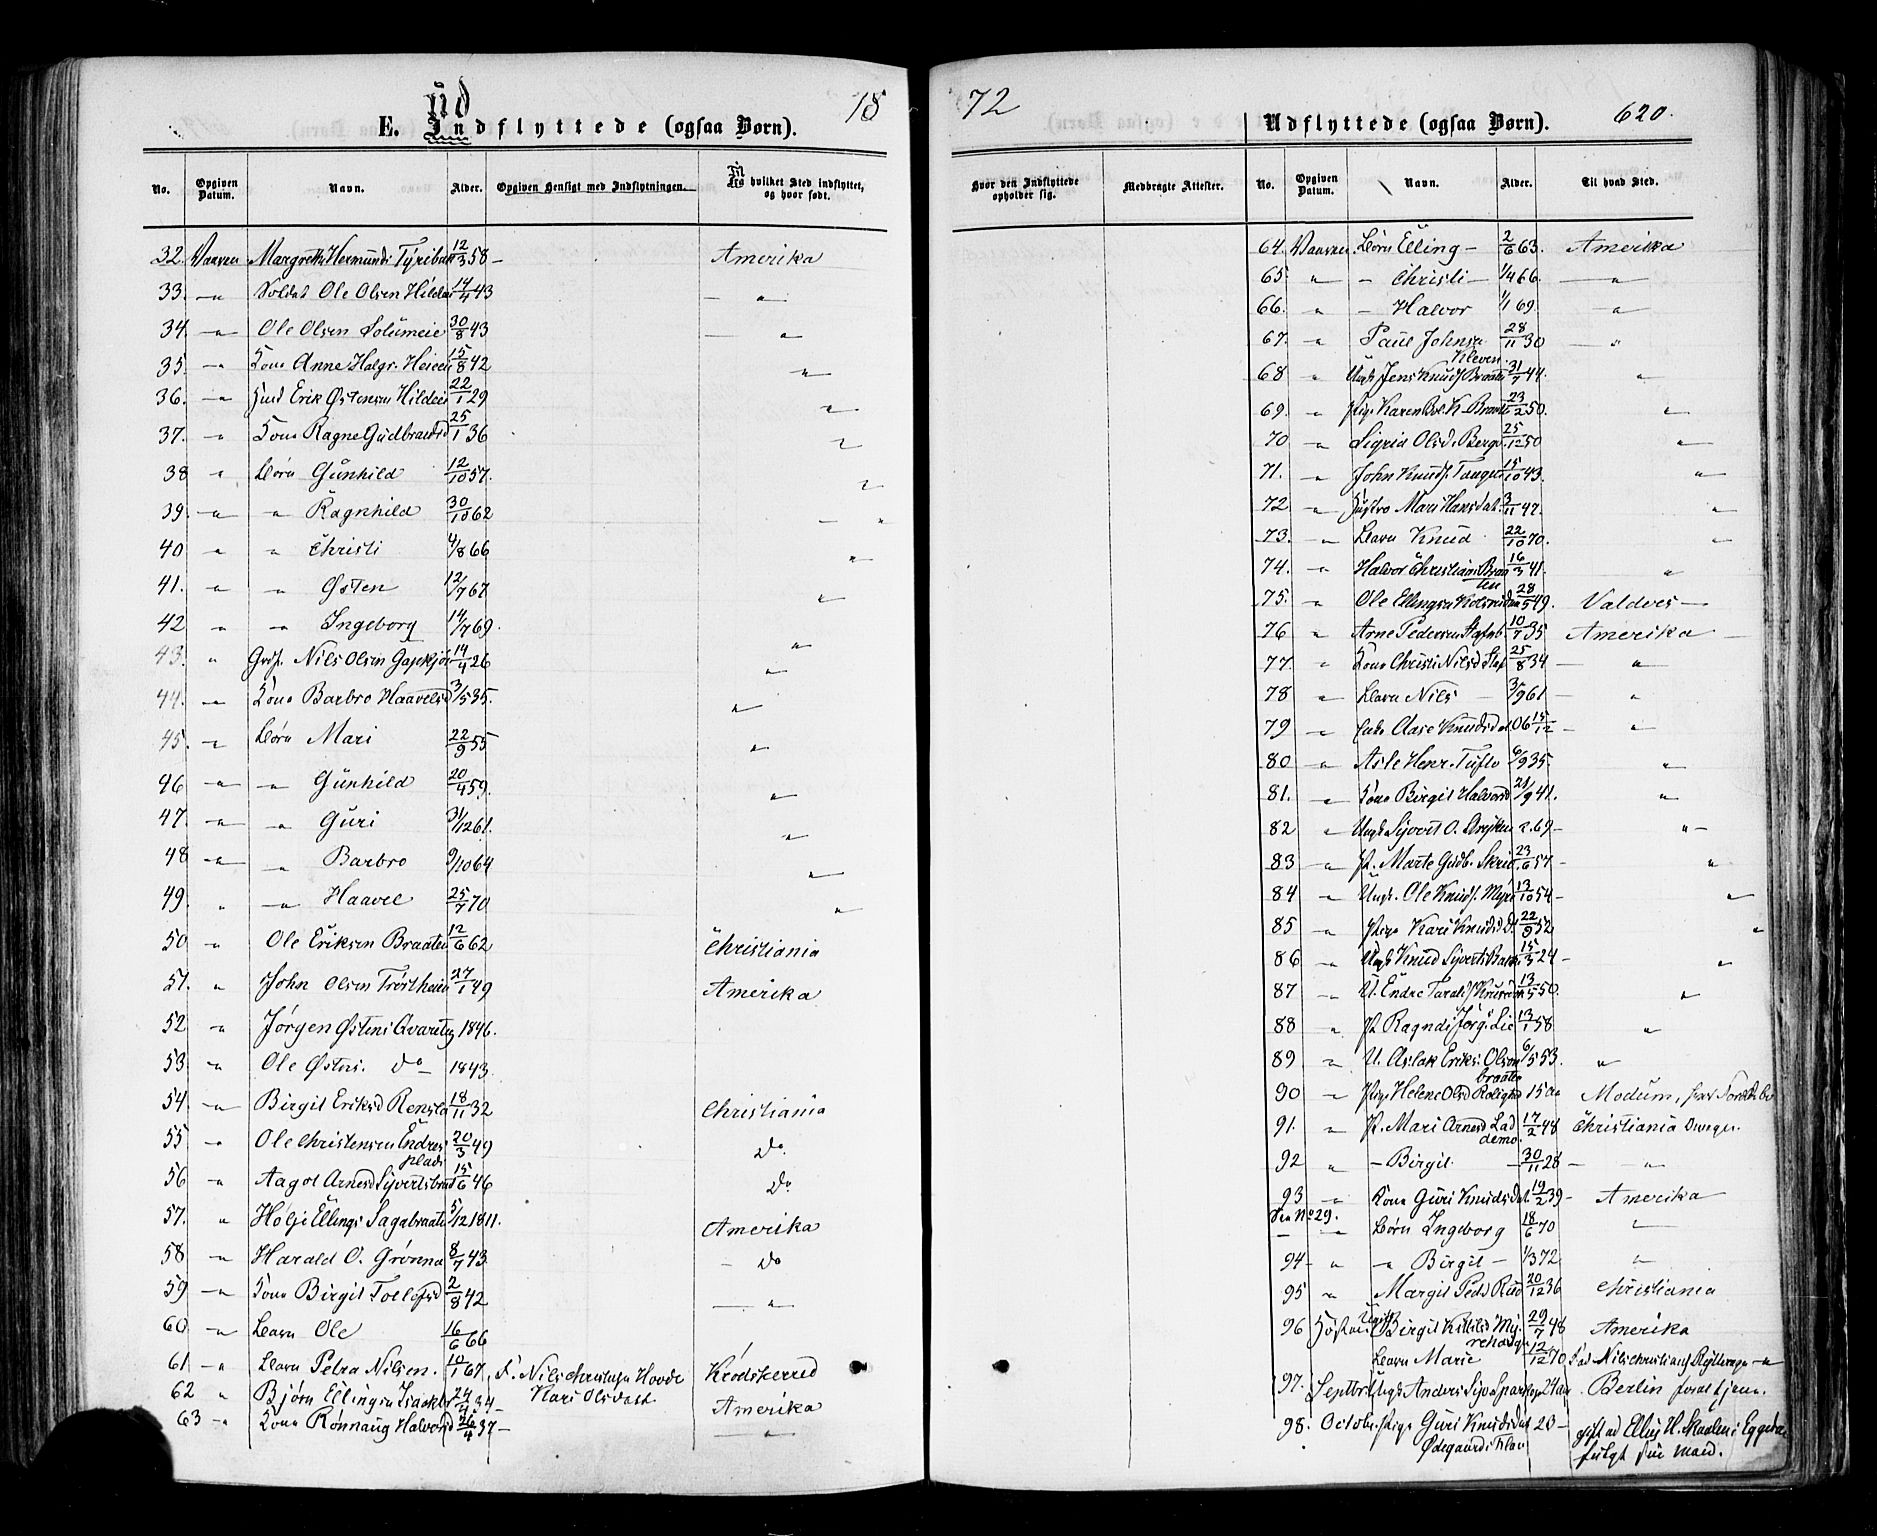 ud
18
E. Indflyttede (ogsaa Børn).
No.
Opgiven Datum.
Navn.
Alder.
Opgiven Hensigt med Indflytningen.
Til
Fra hvilket Sted indflyttet, og hvor født.
32. Vaaren Margrethe Hermunds 12/3 58 - Amerika
33. —"— Soldat Ole Olsen 14/4 43 — " —
34. —"— Ole Olsen Solumeie 30/8 43 — " —
35. —"— Kone Anne Halgr. 15/8 42 "
36. —"— Erik Østensen Hildeie 22/1 29 "
37. " Kone Ragne Gudbrandsd 25/1 36 "
38 " Børn Gunhild 12/10 57. "
39. —"— " Ragnhild 30/10 62 — "
40 " " Christi 4/8 66 "
41. " " Østen 12/7 67 "
42 " " Ingeborg 14/7 69. "
43. " Nils Olsen 14/4 26 "
44. —"— Kone Barbro Haavelsd 3/5 35. "
45. —"— Børn Mari 22/9 55 "
46 —"— —"— Gunhild 20/4 59. "
47. —"— " Guri 31/12 61. "
48 —"— " Barbro 9/10 64 "
49. " —"— Haavel 25/7 70 "
50. " Ole Eriksen Braaten 12/6 62 Christiania
51. " John Olsen 27/1 49 Amerika
52 " Jørgen Østens 1846.
53. —"— Ole Østens. do 1843.
54. —"— Birgit Eriksd 18/11 32 Christiania
55 " Ole Christensen Endres plads 20/3 49 Do.
56 —"— Aagot Arnesd Syvertsbraa 15/6 46 Do
57. " Ellings Sagabraate 5/12 1811. Amerika
58 —"— Harald O. Grønna 8/7 43. — Do
59 —"— Kone Birgit Tollefsd 2/8 42 — " —
60 —"— Barn Ole 16/6 66
61 —"— Barn Petra Nilsen. 10/1 67, F. Nils Christensen Hovde Krødskerred
Kari Olsdatt.
62 " Bjørn Ellingsen 24/4 34 - Amerika
63 —"— Kone Rønnaug Halvorsd 26/4 37 — — " —
72
Udflyttede (ogsaa Børn).
620.
Hvor den Indflyttede opholder sig.
Medbragte Attester.
No.
Opgiven Datum.
Navn.
Alder.
Til hvad Sted.
64. Vaaren Børn Elling — 2/6 63. Amerika
65 " — Christi — 1/4 66. — " —
66. " — Halvor 1/1 69 "
67. " Paul Johnsn Kleven. 28/11 30 — "
68 " Ungk Jens Knuds Braaten 31/7 44. "
69. " Pige Karen K. 23/2 50. "
70 " Sigrid Olsd. Berge 25/12 50 "
71. " John Knuds. 15/10 43. "
72 " Hustro Mari Hansdat. 3/11 47. "
73. —"— Barn Knud 22/10 70. "
74. —"— Halvor Christians Braaten 16/3 41. "
75. " Ole Ellingsn 28/5 49. Valders —
76 " Arne Pedersen 10/7 35 Amerika —
77. " Kone Christi Nilsd 25/8 34 — "
78 " Barn Nils — 3/9 61 — "
79 —"— Aase Knudsdat 06 15/12 — "
80 —"— Asle Henr. Tufte 6/9 35. "
81. —"— Kone Birgit Halvorsd 21/9 41. "
82 " Ungk Syvert O. a. 69 — " —
83 —"— P. Marte Gudb. 23/6 57 — "
84 —"— Ungk. Ole Knuds. 13/10 54 — "
85 " Pige Kari Knudsd 22/9 52 "
86 —"— Ungk Knud Syverts 15/3 24 — "
87 —"— U. Endre 13/5 50. "
88 " P. Ragndi Jørgs Lie 13/1 58 "
89 " U. Aslak Eriks. Olson braaten 6/5 53. "
90 —"— Pige Helene Olsd 15 aar Modum,
91. " P. Mari Arnesd Lad demo. 17/2 48 Christiania
92 " — Birgit. — 30/11 28 — — " —
93 —"— Kone Guri Knudsdat. 19/2 39 — Amerika
Se No 29.
— —"— Børn Ingeborg 18/6 70 "
94 — " —"— Birgit — 1/3 72 "
95 " Margit Peds Rud 20/12 36 Christiania
96 Høsten Ugift Birgit 29/7 48 Amerika
Barn Marie 12/12 70 Nils Christians
97. Septbr Anders 24 aar Berlin for at tjene.
98. October Pige Guri Knudsdat 20 — gift ad H. i Eggedal
Ødegaards fulgt sin Mand.